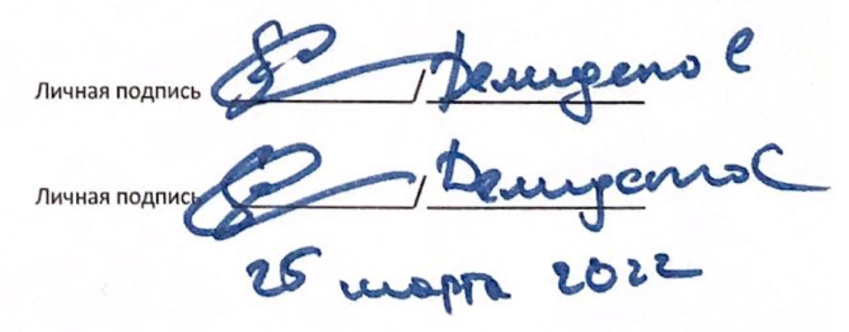 Личная подпись / Демидено С
Личная подпись / Демидепо С
25 марта 2022